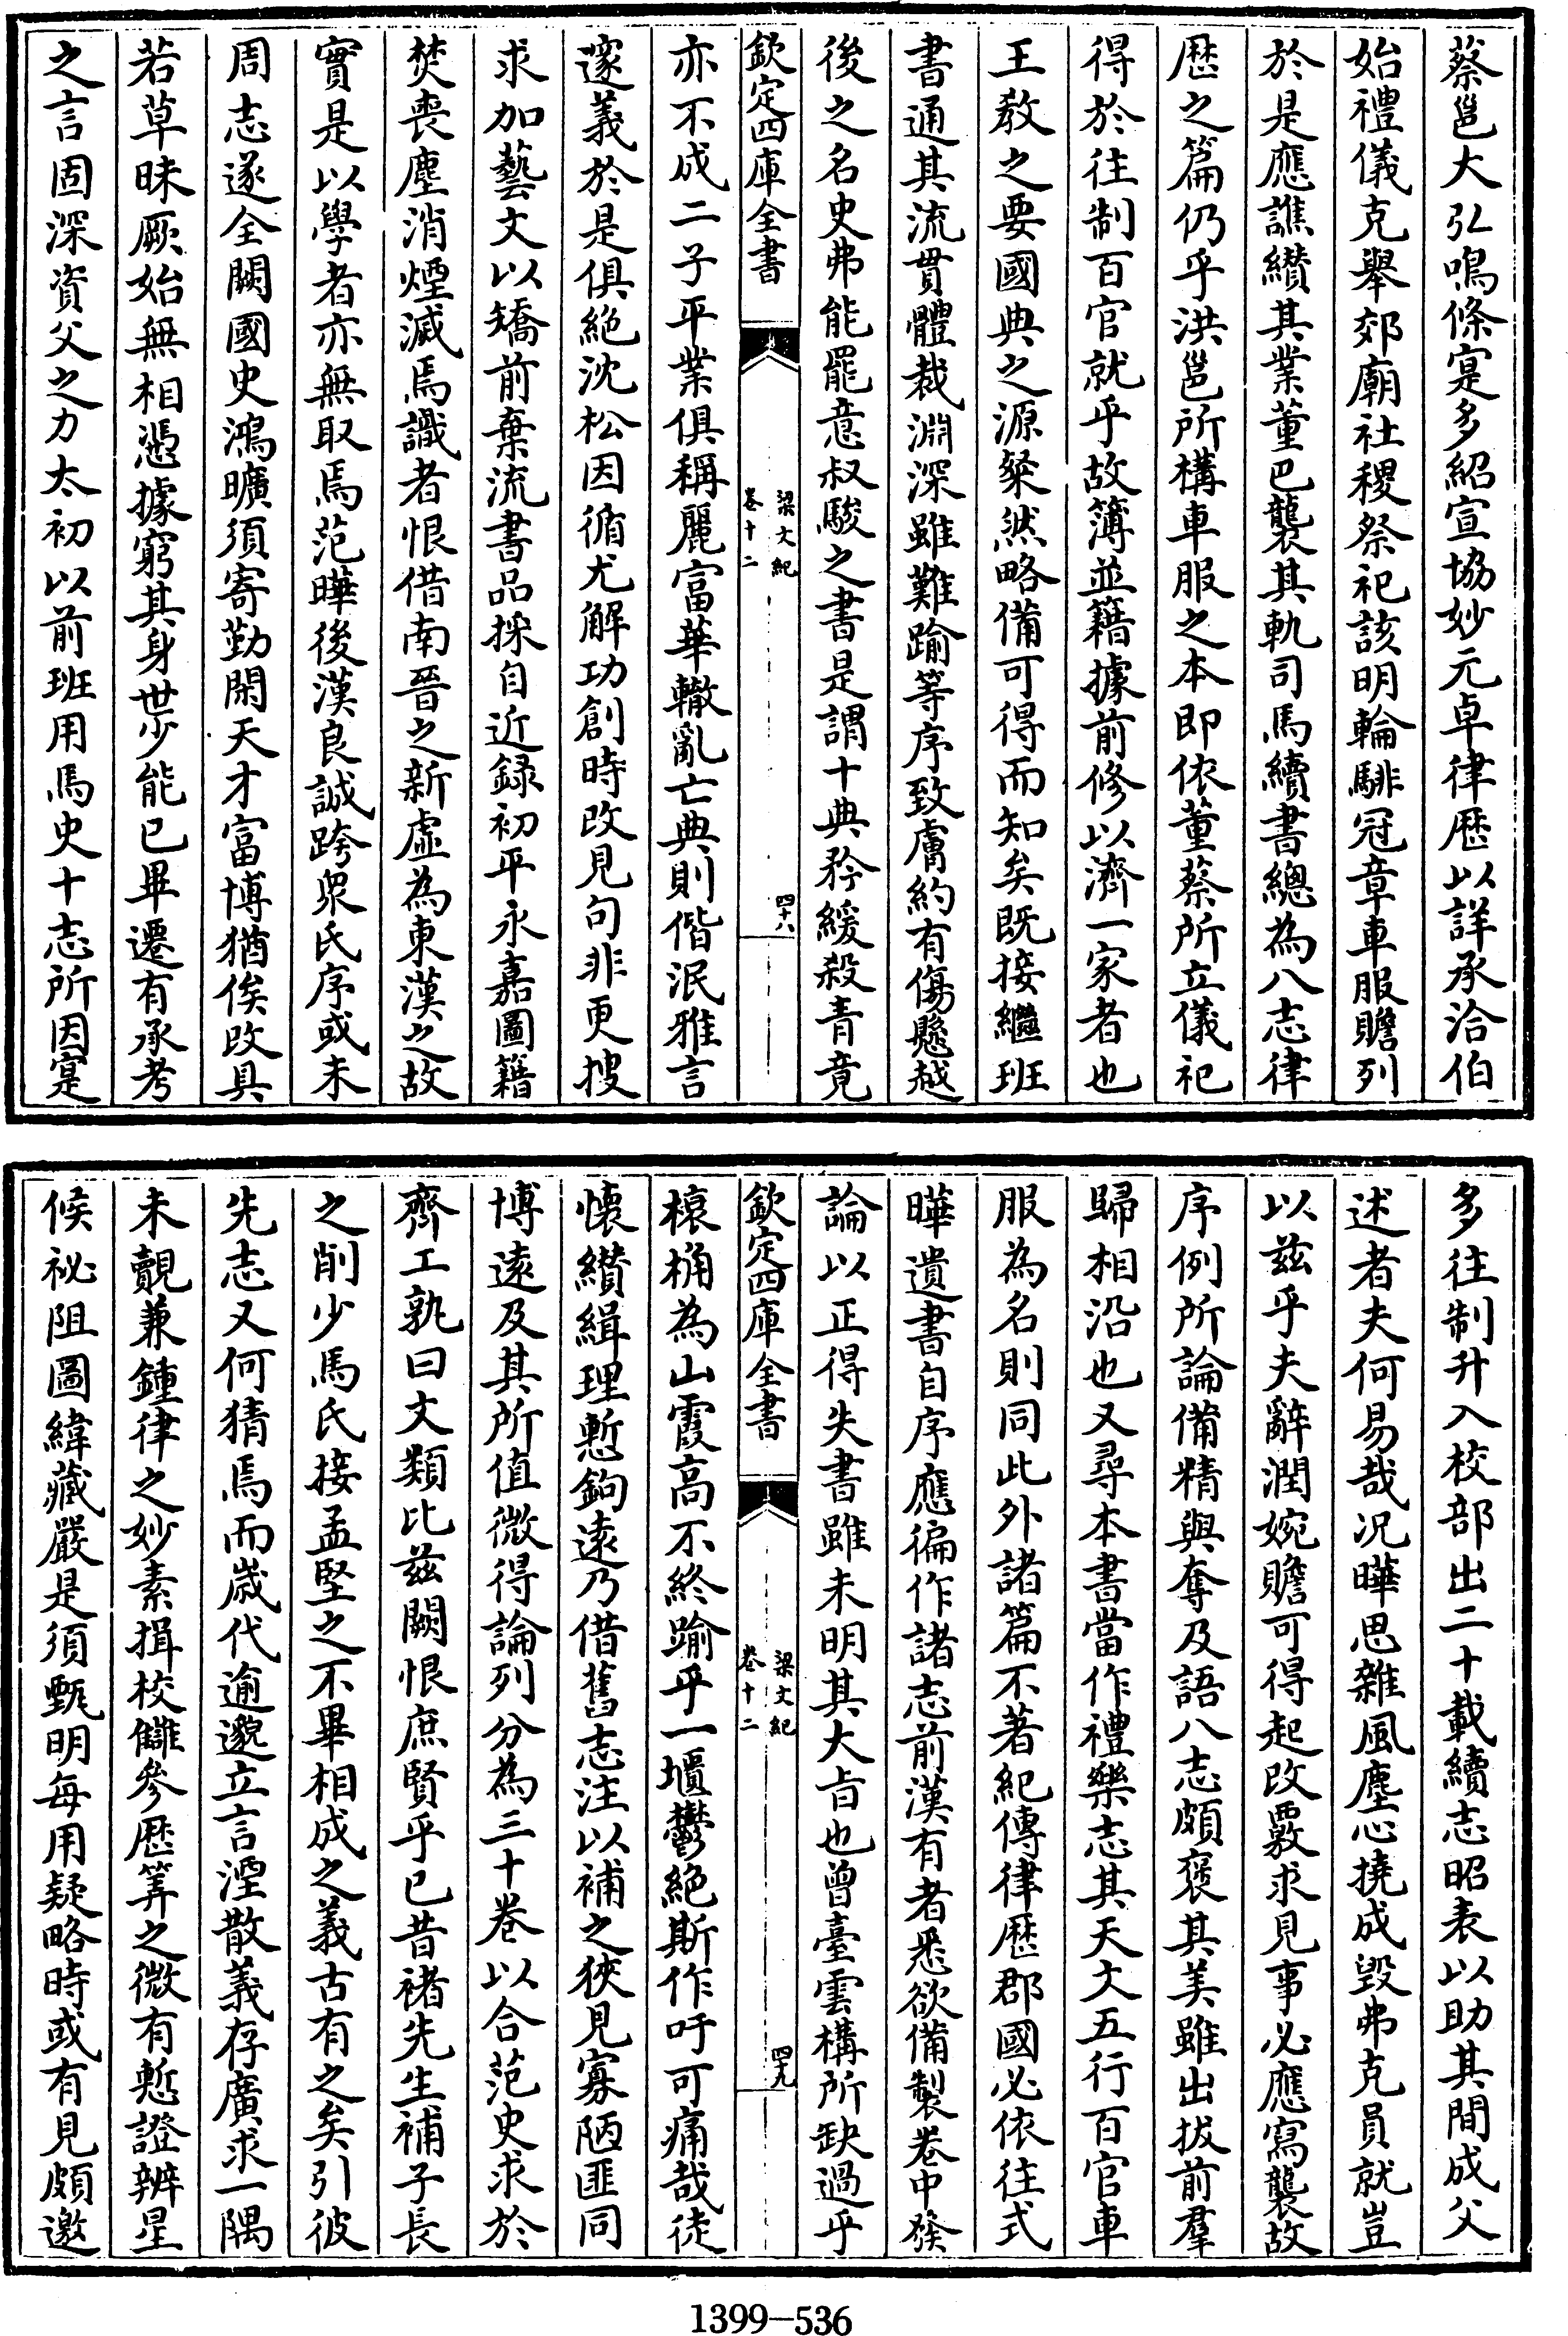 蔡邕大弘鳴條寔多紹宣協妙元卓律歷以詳承洽伯
始禮儀克舉郊廟社稷祭祀該明輪騑冠章車服贍列
於是應譙纘其業董巴襲其軌司馬續書總為八志律
歷之篇仍乎洪邕所構車服之本即依董蔡所立儀祀
得於往制百官就乎故簿並籍據前修以濟一家者也
王教之要國典之源粲然略備可得而知矣既接繼班
書通其流貫體裁淵深雖難踰等序致膚約有傷懸越
後之名史弗能罷意叔駿之書是謂十典矜緩殺青竟
欽定四庫全書
梁文紀
卷十二
四十八
亦不成二子平業俱稱麗富華轍亂亡典則偕泯雅言
邃義於是俱絕沈松因循尤解功創時改見句非更搜
求加藝文以矯前棄流書品採自近録初平永嘉圖籍
焚喪塵消煙滅焉識者恨借南晉之新虛為東漢之故
實是以學者亦無取焉范曄後漢良誠跨衆氏序或未
周志遂全闕國史鴻曠須寄勤閑天才富博猶俟改具
若草昧厥始無相憑據窮其身世少能已畢遷有承考
之言固深資父之力太初以前班用馬史十志所因寔
多往制升入校部出二十載續志昭表以助其間成父
述者夫何易哉況曄思雜風塵心撓成毀弗克員就豈
以茲乎夫辭潤婉贍可得起改覈求見事必應寫襲故
序例所論備精與奪及語八志頗褒其美雖出拔前羣
歸相沿也又尋本書當作禮樂志其天文五行百官車
服為名則同此外諸篇不著紀傳律歷郡國必依往式
曄遺書自序應徧作諸志前漢有者悉欲備製卷中發
論以正得失書雖未明其大旨也曾臺雲構所缺過乎
欽定四庫全書
梁文紀
卷十二
四十九
榱桷為山霞高不終踰乎一壝鬱絕斯作吁可痛哉徒
懷纘緝理慙鉤遠乃借舊志注以補之狹見寡陋匪同
博遠及其所值微得論列分為三十卷以合范史求於
齊工孰曰文類比茲闕恨庶賢乎已昔褚先生補子長
之削少馬氏接孟堅之不畢相成之義古有之矣引彼
先志又何猜焉而歲代逾邈立言湮散義存廣求一隅
未覿兼鍾律之妙素揖校讎參歷筭之微有慙證辨星
候祕阻圖緯藏嚴是須甄明每用疑略時或有見頗邀
1399—536